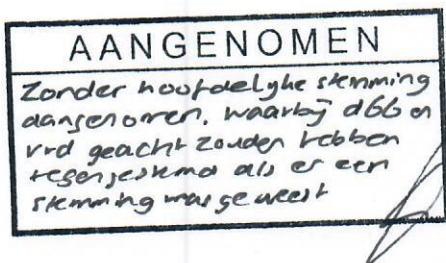 AANGENOMEN
Zonder hoofdelijke stemming
aangenomen, waarbij d66 en
vvd geacht zouden hebben
tegengestemd als er een
stemming was geweest